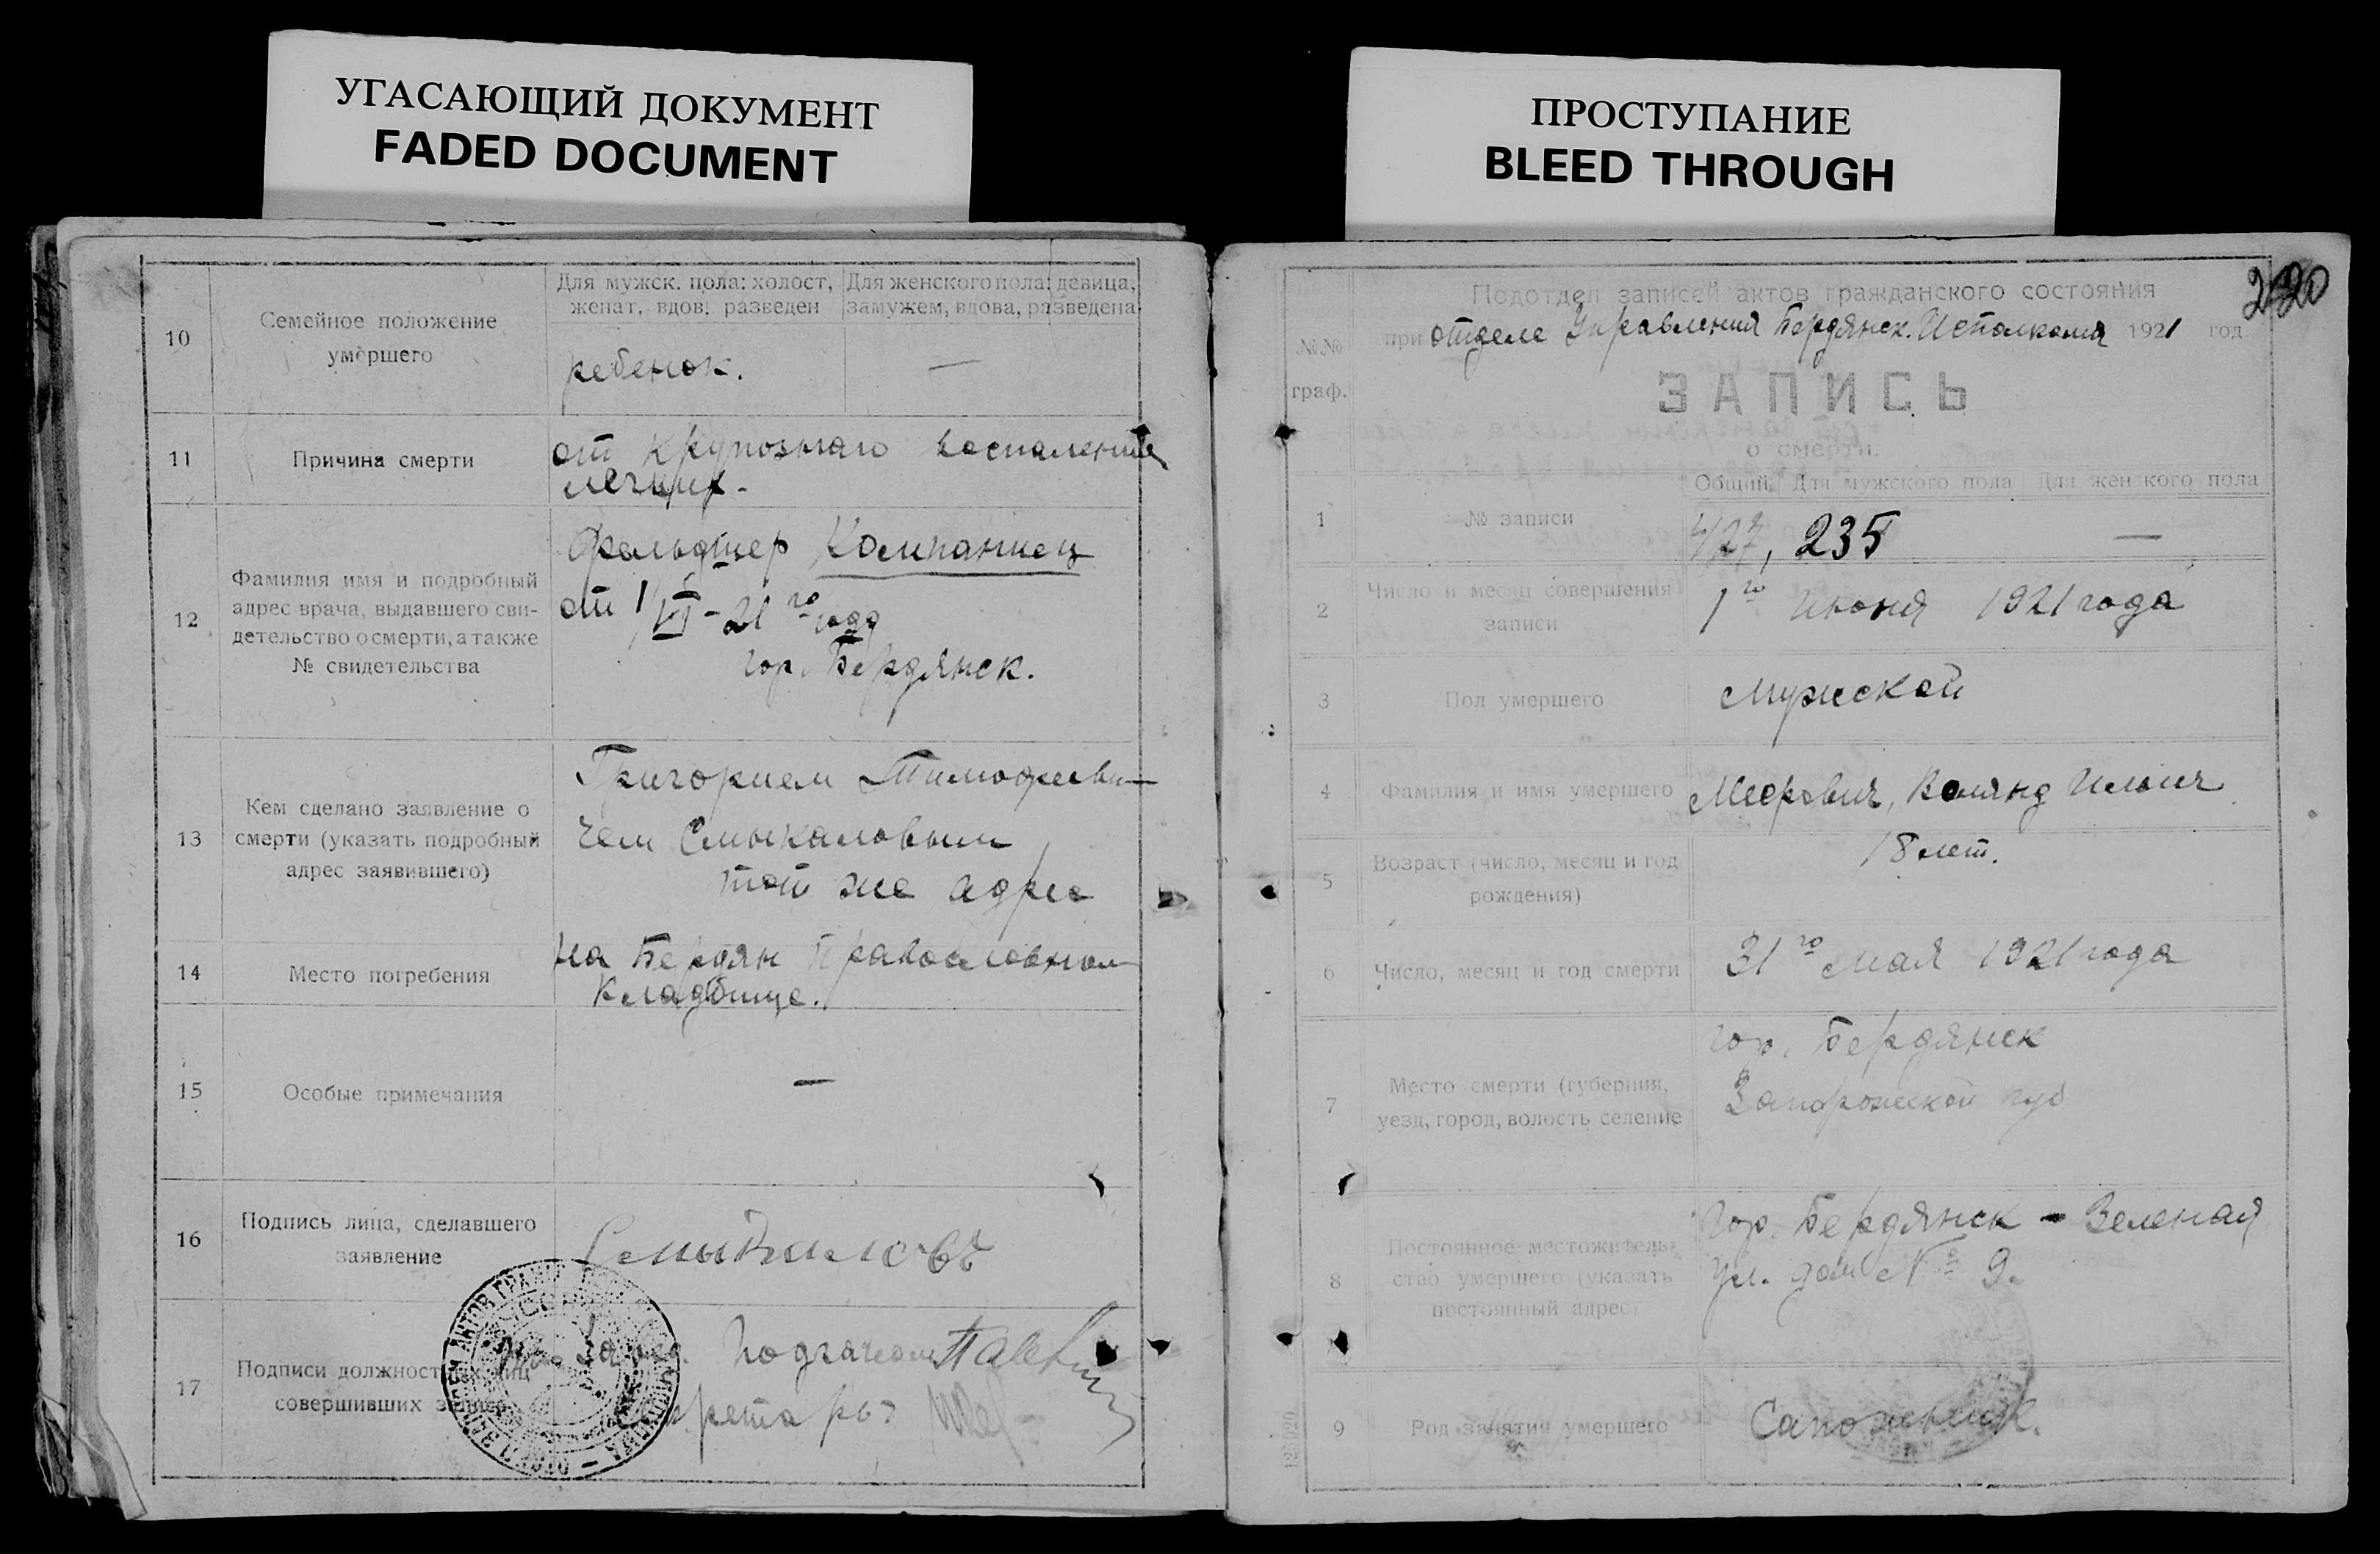 УГАСАЮЩИЙ ДОКУМЕНТ
FADED DOCUMENT
10
Семейное положение
умершего
Для мужск. пола: холост,
женат, вдов. разведен
Для женского пола: девица,
замужем, вдова, разведена
ребенок.
—
11
Причина смерти
от крупознаго воспаления
легких.
12
Фамилия имя и подробный
адрес врача, выдавшего сви-
детельство о смерти, а также
№ свидетельства
Фельдшер Компаниец
от 1/VI - 21 го года
гор. Бердянск.
13
Кем сделано заявление о
смерти (указать подробный
адрес заявившего)
Григорием Тимофееви-
чем Смыкаловым
тот же адрес
14
Место погребения
на Бердян Православном
кладбище.
15
Особые примечания
—
16
Подпись лица, сделавшего
заявление
Смыкаловъ
17
Подписи должностных лиц
совершивших запись
Завед.
Секретарь
ПРОСТУПАНИЕ
BLEED THROUGH
220
№№
граф.
Подотдел записей актов гражданского состояния
при отделе Управления Бердянск. Исполкома 1921 год
ЗАПИСЬ
о смерти.
Общий Для мужского пола Для женского пола
1
№ записи
427, 235 —
2
Число и месяц совершения
записи
1го июня 1921 года
3
Пол умершего
Мужской
4
Фамилия и имя умершего
Меерович, Ильич
5
Возраст (число, месяц и год
рождения)
18 лет.
6
Число, месяц и год смерти
31го мая 1921 года
7
Место смерти (губерния,
уезд, город, волость селение
гор. Бердянск
Запорожской губ
8
Постоянное местожитель-
ство умершего (указать
постоянный адрес)
Гор. Бердянск - Зеленая
ул. дом № 9.
9
Род занятий умершего
Сапожник.